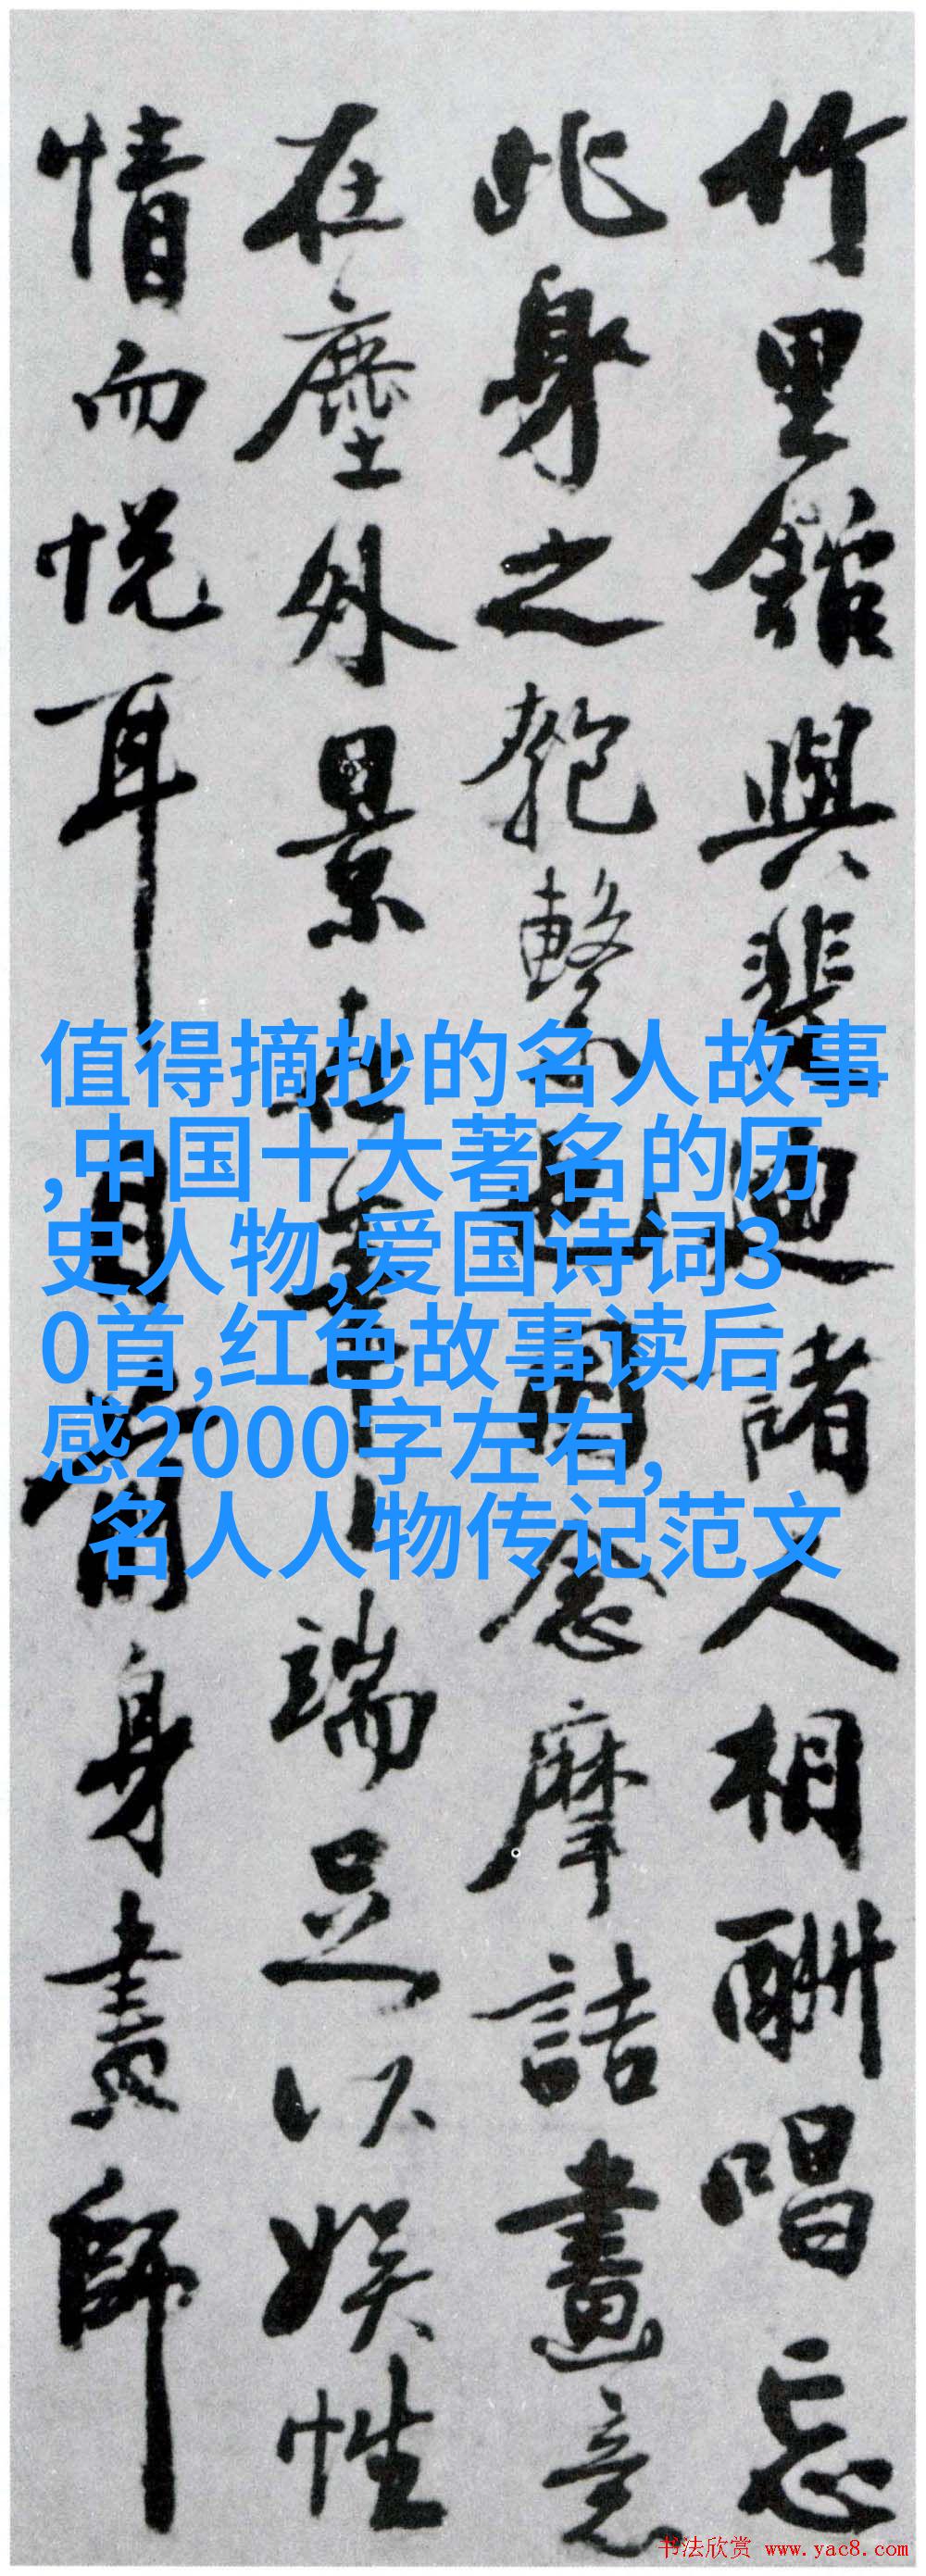 竹里館與裴迪諸人相酬唱忘
此身之匏繫也因念摩詰畫意
在塵外景在筆端足以娛性
情而悅耳目前身畫師
值得摘抄的名人故事
,中国十大著名的历
史人物,爱国诗词3
0首,红色故事读后
感2000字左右,
名人人物传记范文
书法欣赏 www.yac8.com